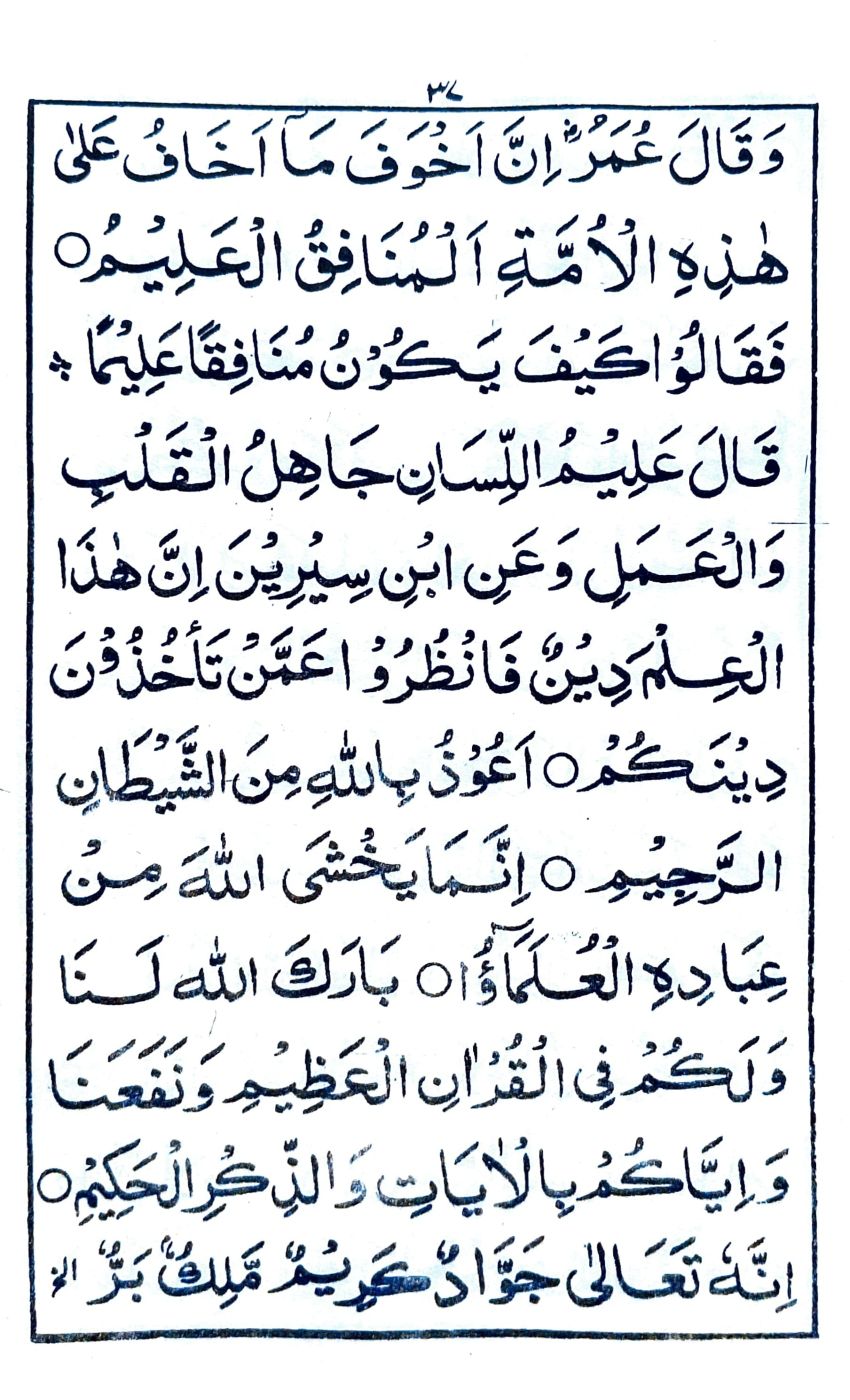 ٣٧
وَقَالَ عُمَرُؓ اِنَّ اَخْوَفَ مَآ اَخَافُ عَلٰى
هٰذِهِ الْاُمَّةِ اَلْمُنَافِقُ الْعَلِيْمُ○
فَقَالُوْا كَيْفَ يَكُوْنُ مُنَافِقًا عَلِيْمًا
قَالَ عَلِيْمُ اللِّسَانِ جَاهِلُ الْقَلْبِ
وَالْعَمَلِ وَعَنِ ابْنِ سِيْرِيْنَ اِنَّ هٰذَا
الْعِلْمَ دِيْنٌ فَانْظُرُوْا عَمَّنْ تَأْخُذُوْنَ
دِيْنَكُمْ○ اَعُوْذُ بِاللّٰهِ مِنَ الشَّيْطَانِ
الرَّجِيْمِ ○ اِنَّمَا يَخْشَى اللّٰهَ مِنْ
عِبَادِهِ الْعُلَمَآؤُا○ بَارَكَ اللّٰه لَنَا
وَلَكُمْ فِي الْقُرْاٰنِ الْعَظِيْمِ وَنَفَعَنَا
وَاِيَّاكُمْ بِالْاٰيَاتِ وَالذِّكْرِ الْحَكِيْمِ○
اِنَّهٗ تَعَالٰى جَوَّادٌ كَرِيْمٌ مَّلِكٌ بَرٌّ الخ